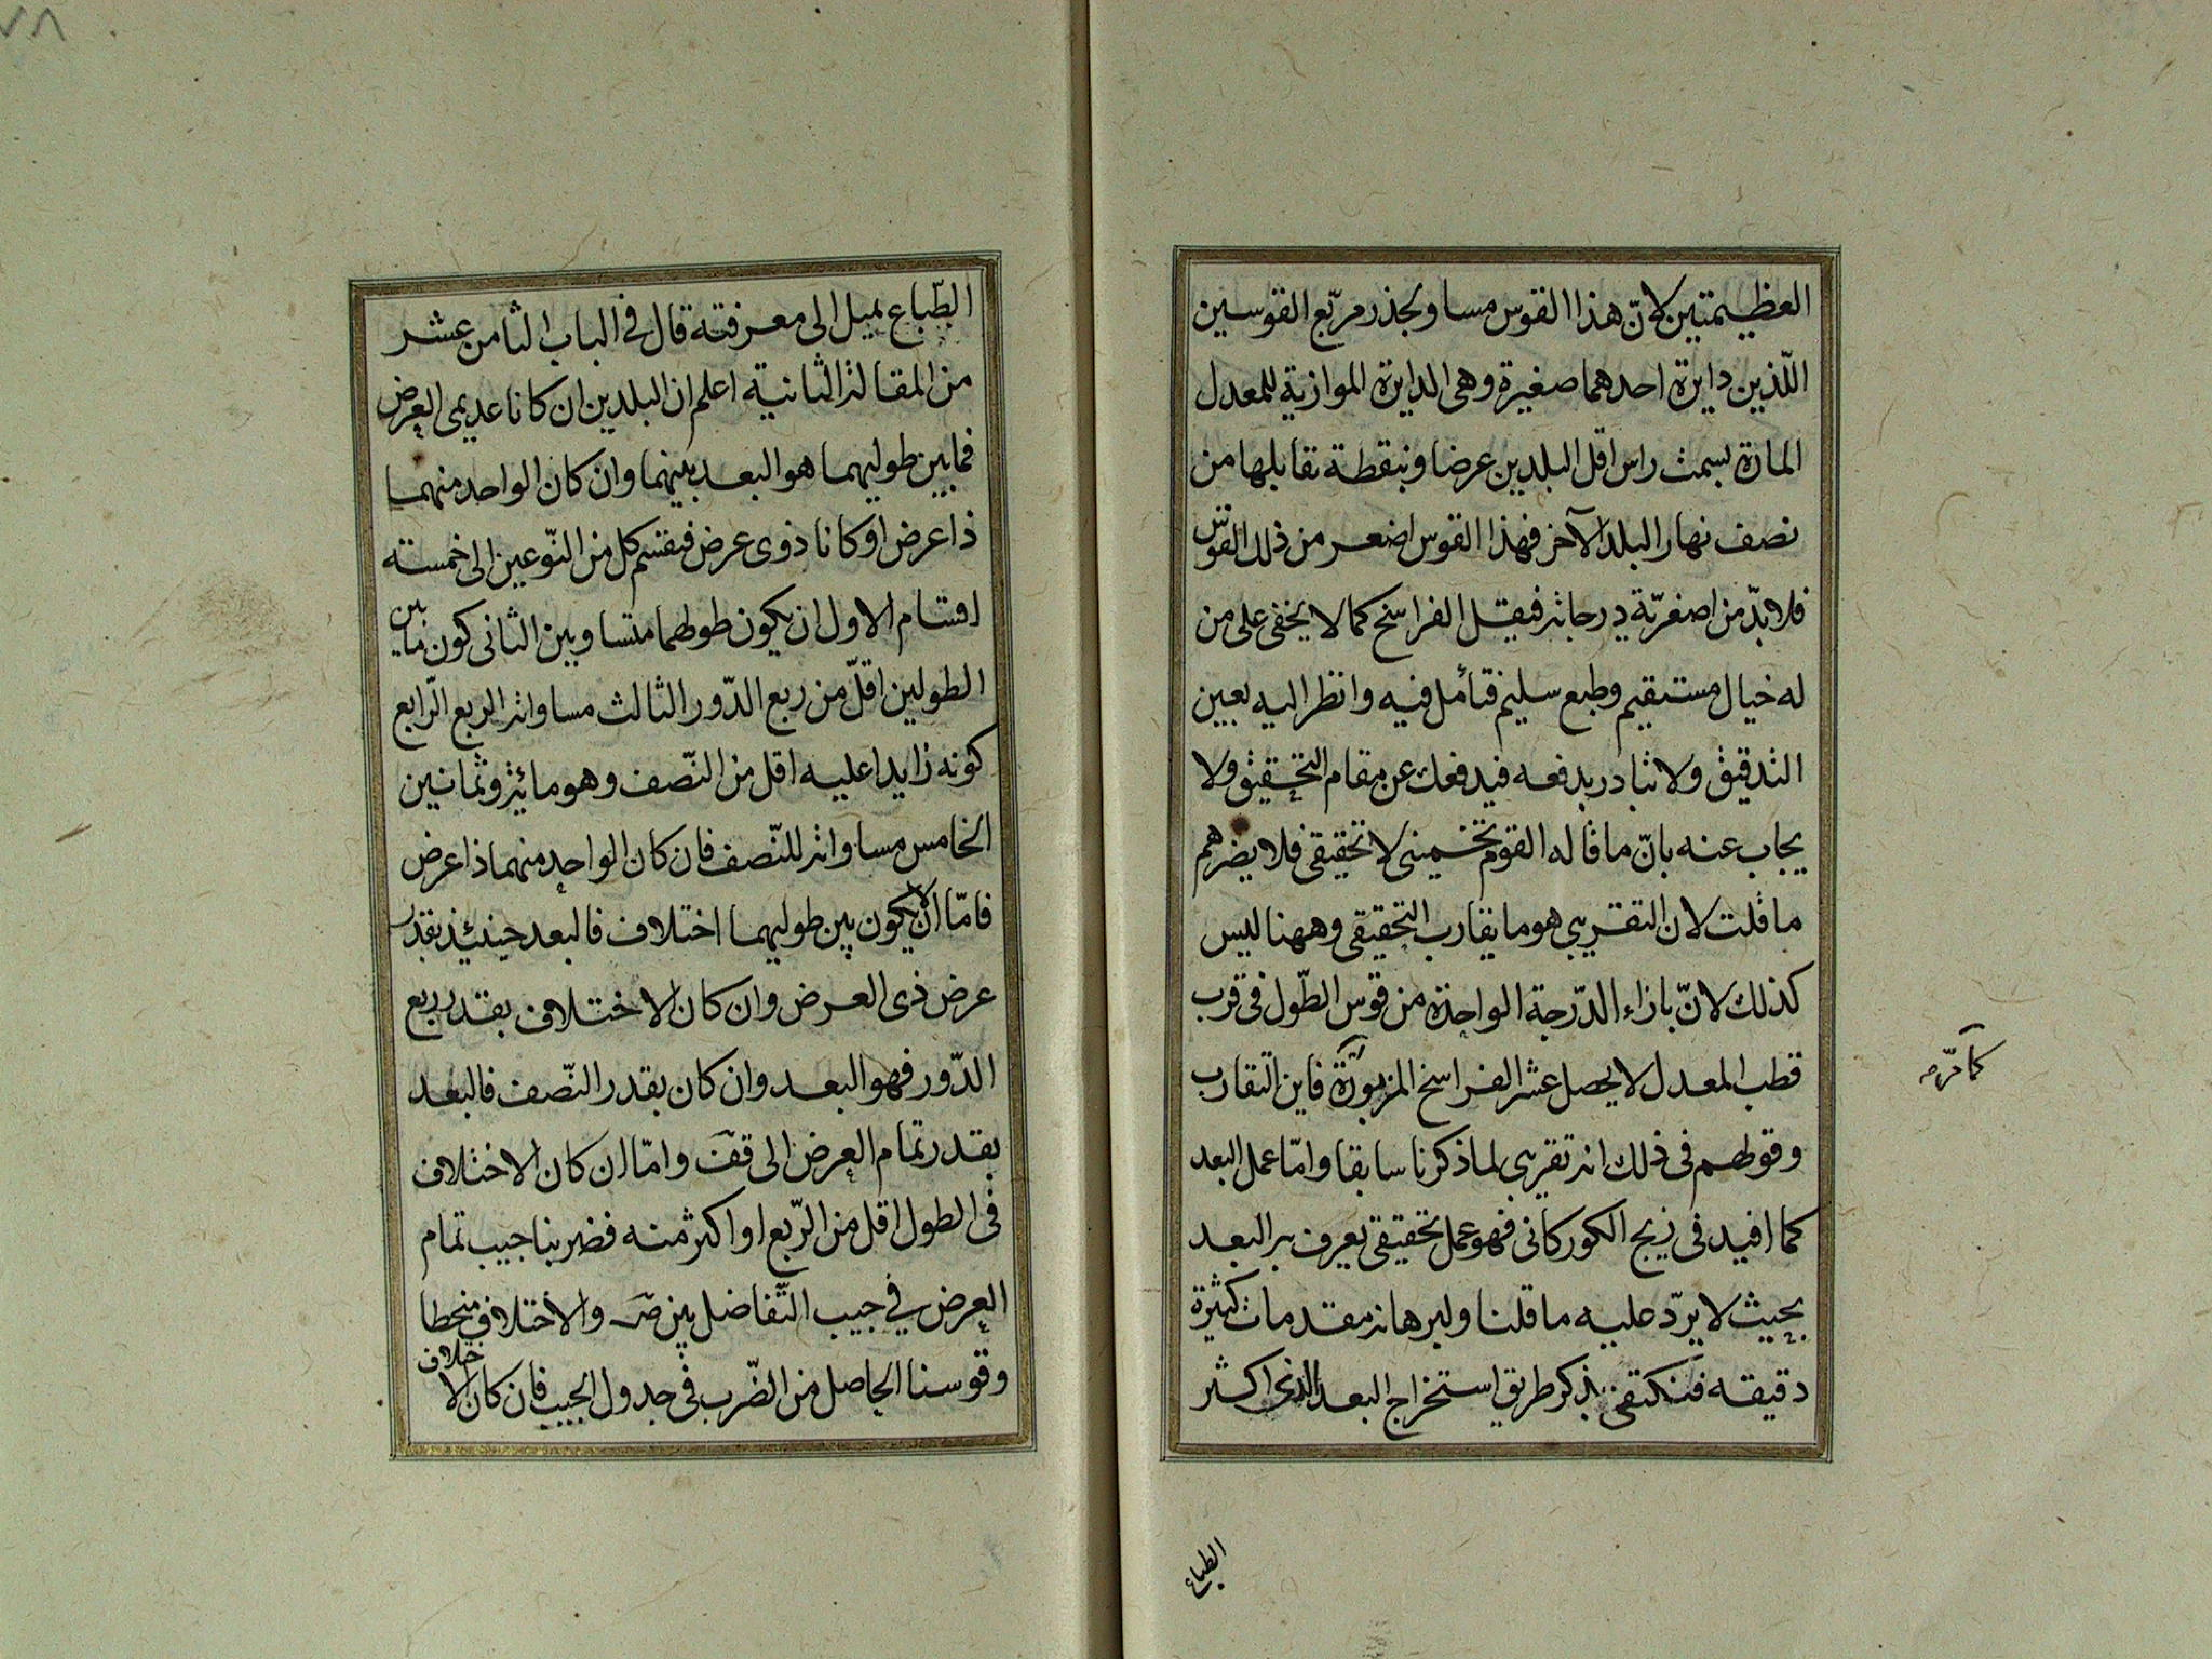 العظيمتين لانّ هذا القوس مساو بجذر مربّع القوسين
اللّذين دايرة احدهما صغيرة وهى الدايرة الموازية للمعدل
المارة بسمت راس اقل البلدين عرضا وبنقطة تقابلها من
نصف نهار البلد الآخر فهذا القوس اصغر من ذلك القوس
فلا بدّ من اصغريّة درجاته فيقل الفراسخ كما لا يخفى على من
له خيال مستقيم وطبع سليم فتأمل فيه وانظر اليه بعين
التدقيق ولا تبادر بدفعه فيدفعك عن مقام التحقيق ولا
يجاب عنه بانّ ما قاله القوم تخمينى لا تحقيقى فلا يضرهم
ما قلت لان التقريبى هو ما يقارب التحقيقى وههنا ليس
كذلك لانّ بازاء الدّرجة الواحدة من قوس الطّول فى قرب
قطب المعدل لا يحصل عشر الفراسخ المزبورة فاين التقارب
كما مرّ صه
وقولهم فى ذلك انه تقريبى لما ذكرنا سابقا وامّا عمل البعد
كما افيد فى زيج الكوركانى فهو عمل تحقيقى يعرف به البعد
بحيث لا يرد عليه ما قلنا ولبرهانه مقدمات كثيرة
دقيقه فنكتفى بذكر طريق استخراج البعد الذى اكثر
الطباع
٧٨
الطّباع يميل الى معرفته قال فى الباب الثامن عشر
من المقالة الثانية اعلم ان البلدين ان كانا عديمى العرض
فما بين طوليهما هو البعد بينهما وان كان الواحد منهما
ذا عرض او كانا ذوى عرض فينقسم كل من النّوعين الى خمسته
اقسام الاول ان يكون طولهما متساويين الثانى كون ما بين
الطولين اقلّ من ربع الدّور الثالث مساواته الربع الرّابع
كونه زايدا عليه اقل من النّصف وهو مائة وثمانين
الخامس مساواته للنّصف فان كان الواحد منهما ذا عرض
فامّا ان لا يكون بين طوليهما اختلاف فالبعد حينئذ بقدر
عرض ذى العرض وان كان الاختلاف بقدر ربع
الدّور فهو البعد وان كان بقدر النّصف فالبعد
بقدر تمام العرض الى قف وامّا ان كان الاختلاف
فى الطول اقل من الرّبع او اكثر منه فضربنا جيب تمام
العرض في جيب التّفاضل بين ص والاختلاف منحطا
وقوسنا الحاصل من الضّرب فى جدول الجيب فان كان الاختلاف